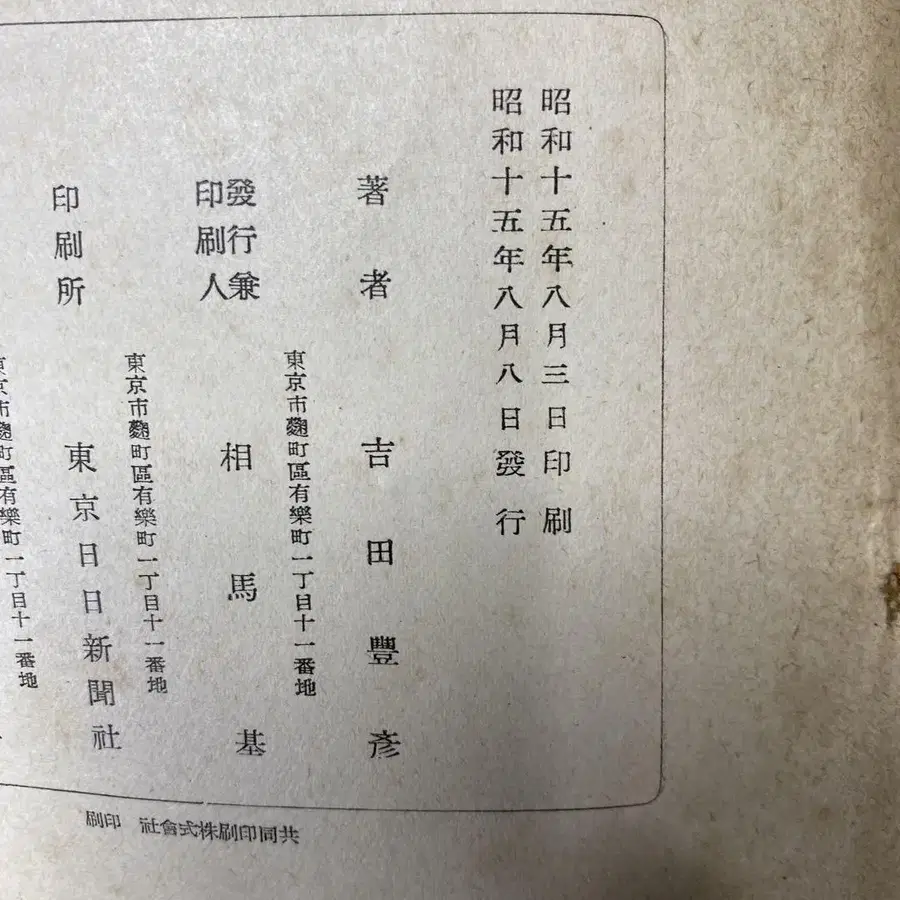 昭和十五年八月三日印刷
昭和十五年八月八日發行
著者 吉田豐彥
東京市麴町區有樂町一丁目十一番地
發行兼印刷人 相馬基
東京市麴町區有樂町一丁目十一番地
印刷所 東京日日新聞社
東京市麴町區有樂町一丁目十一番地
共同印刷株式會社 印刷